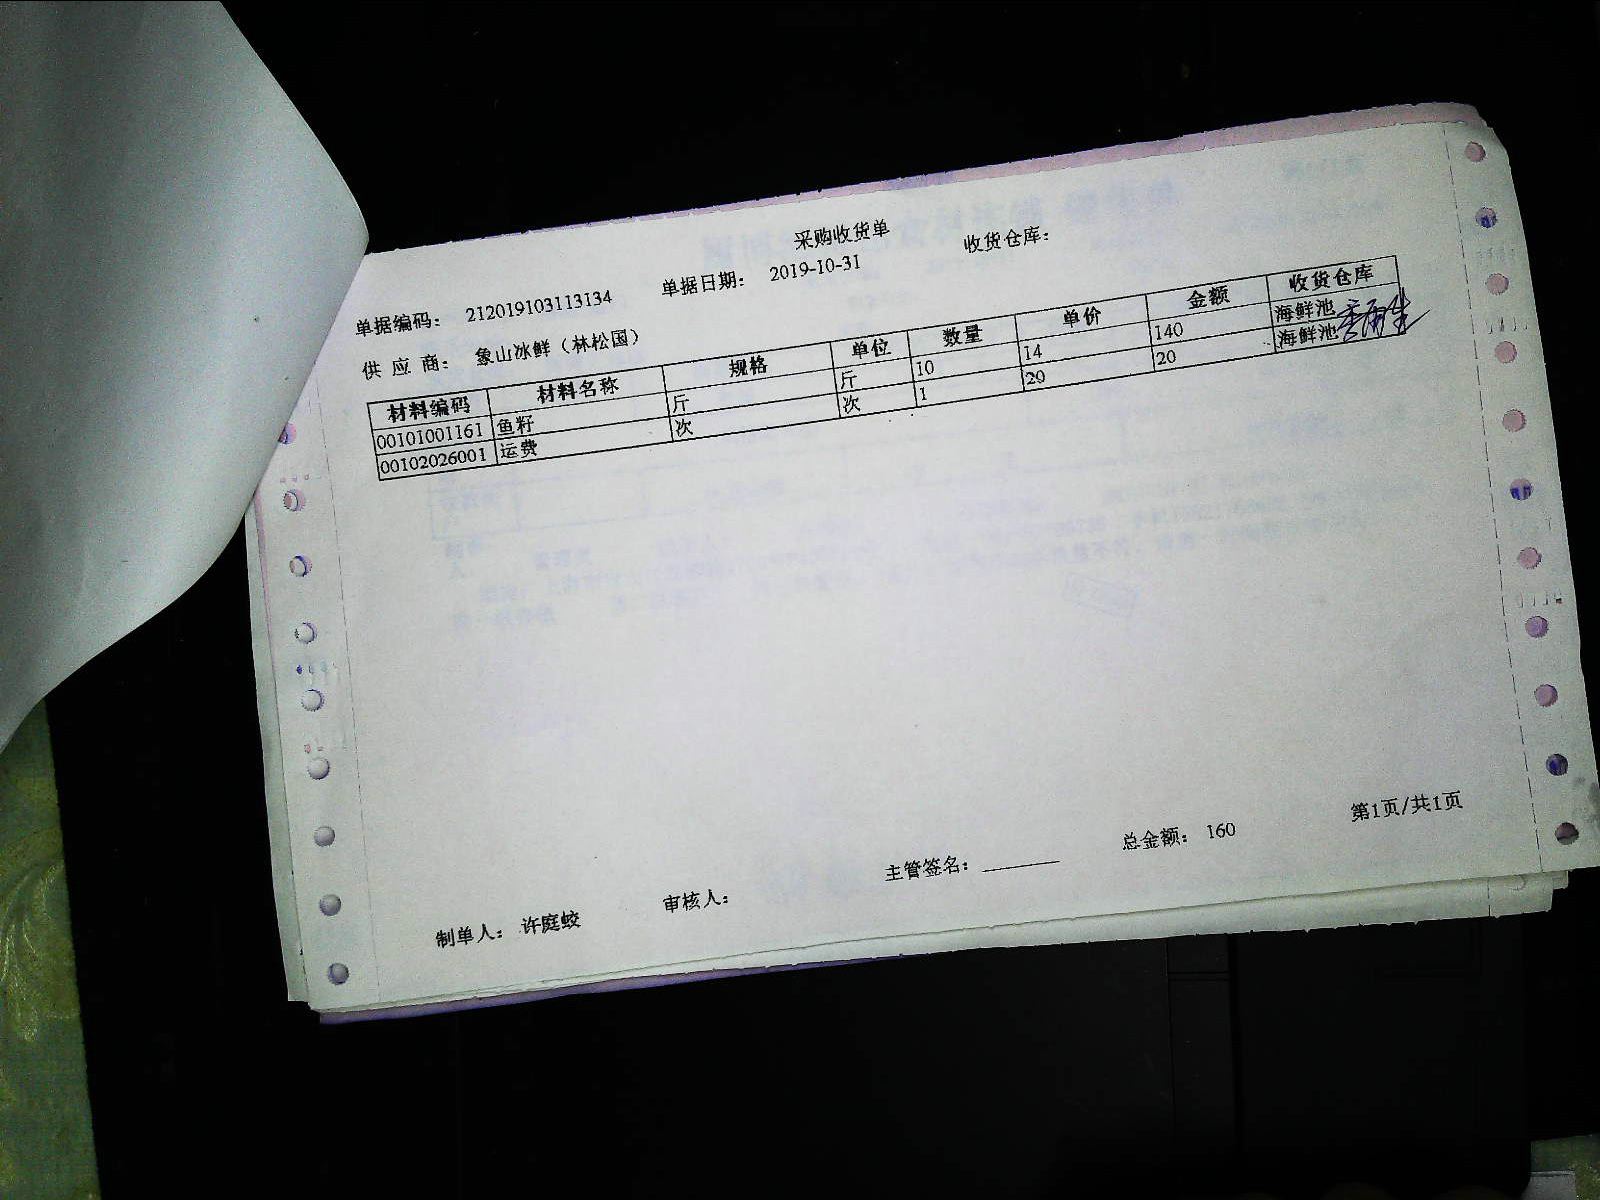 采购收货单
单据编码: 212019103113134 单据日期: 2019-10-31 收货仓库:
供 应 商: 象山冰鲜（林松国）
材料编码 材料名称 规格 单位 数量 单价 金额 收货仓库
00101001161 鱼籽 斤 斤 10 14 140 海鲜池
00102026001 运费 次 次 1 20 20 海鲜池
制单人: 许庭蛟 审核人: 主管签名: 总金额: 160 第1页/共1页